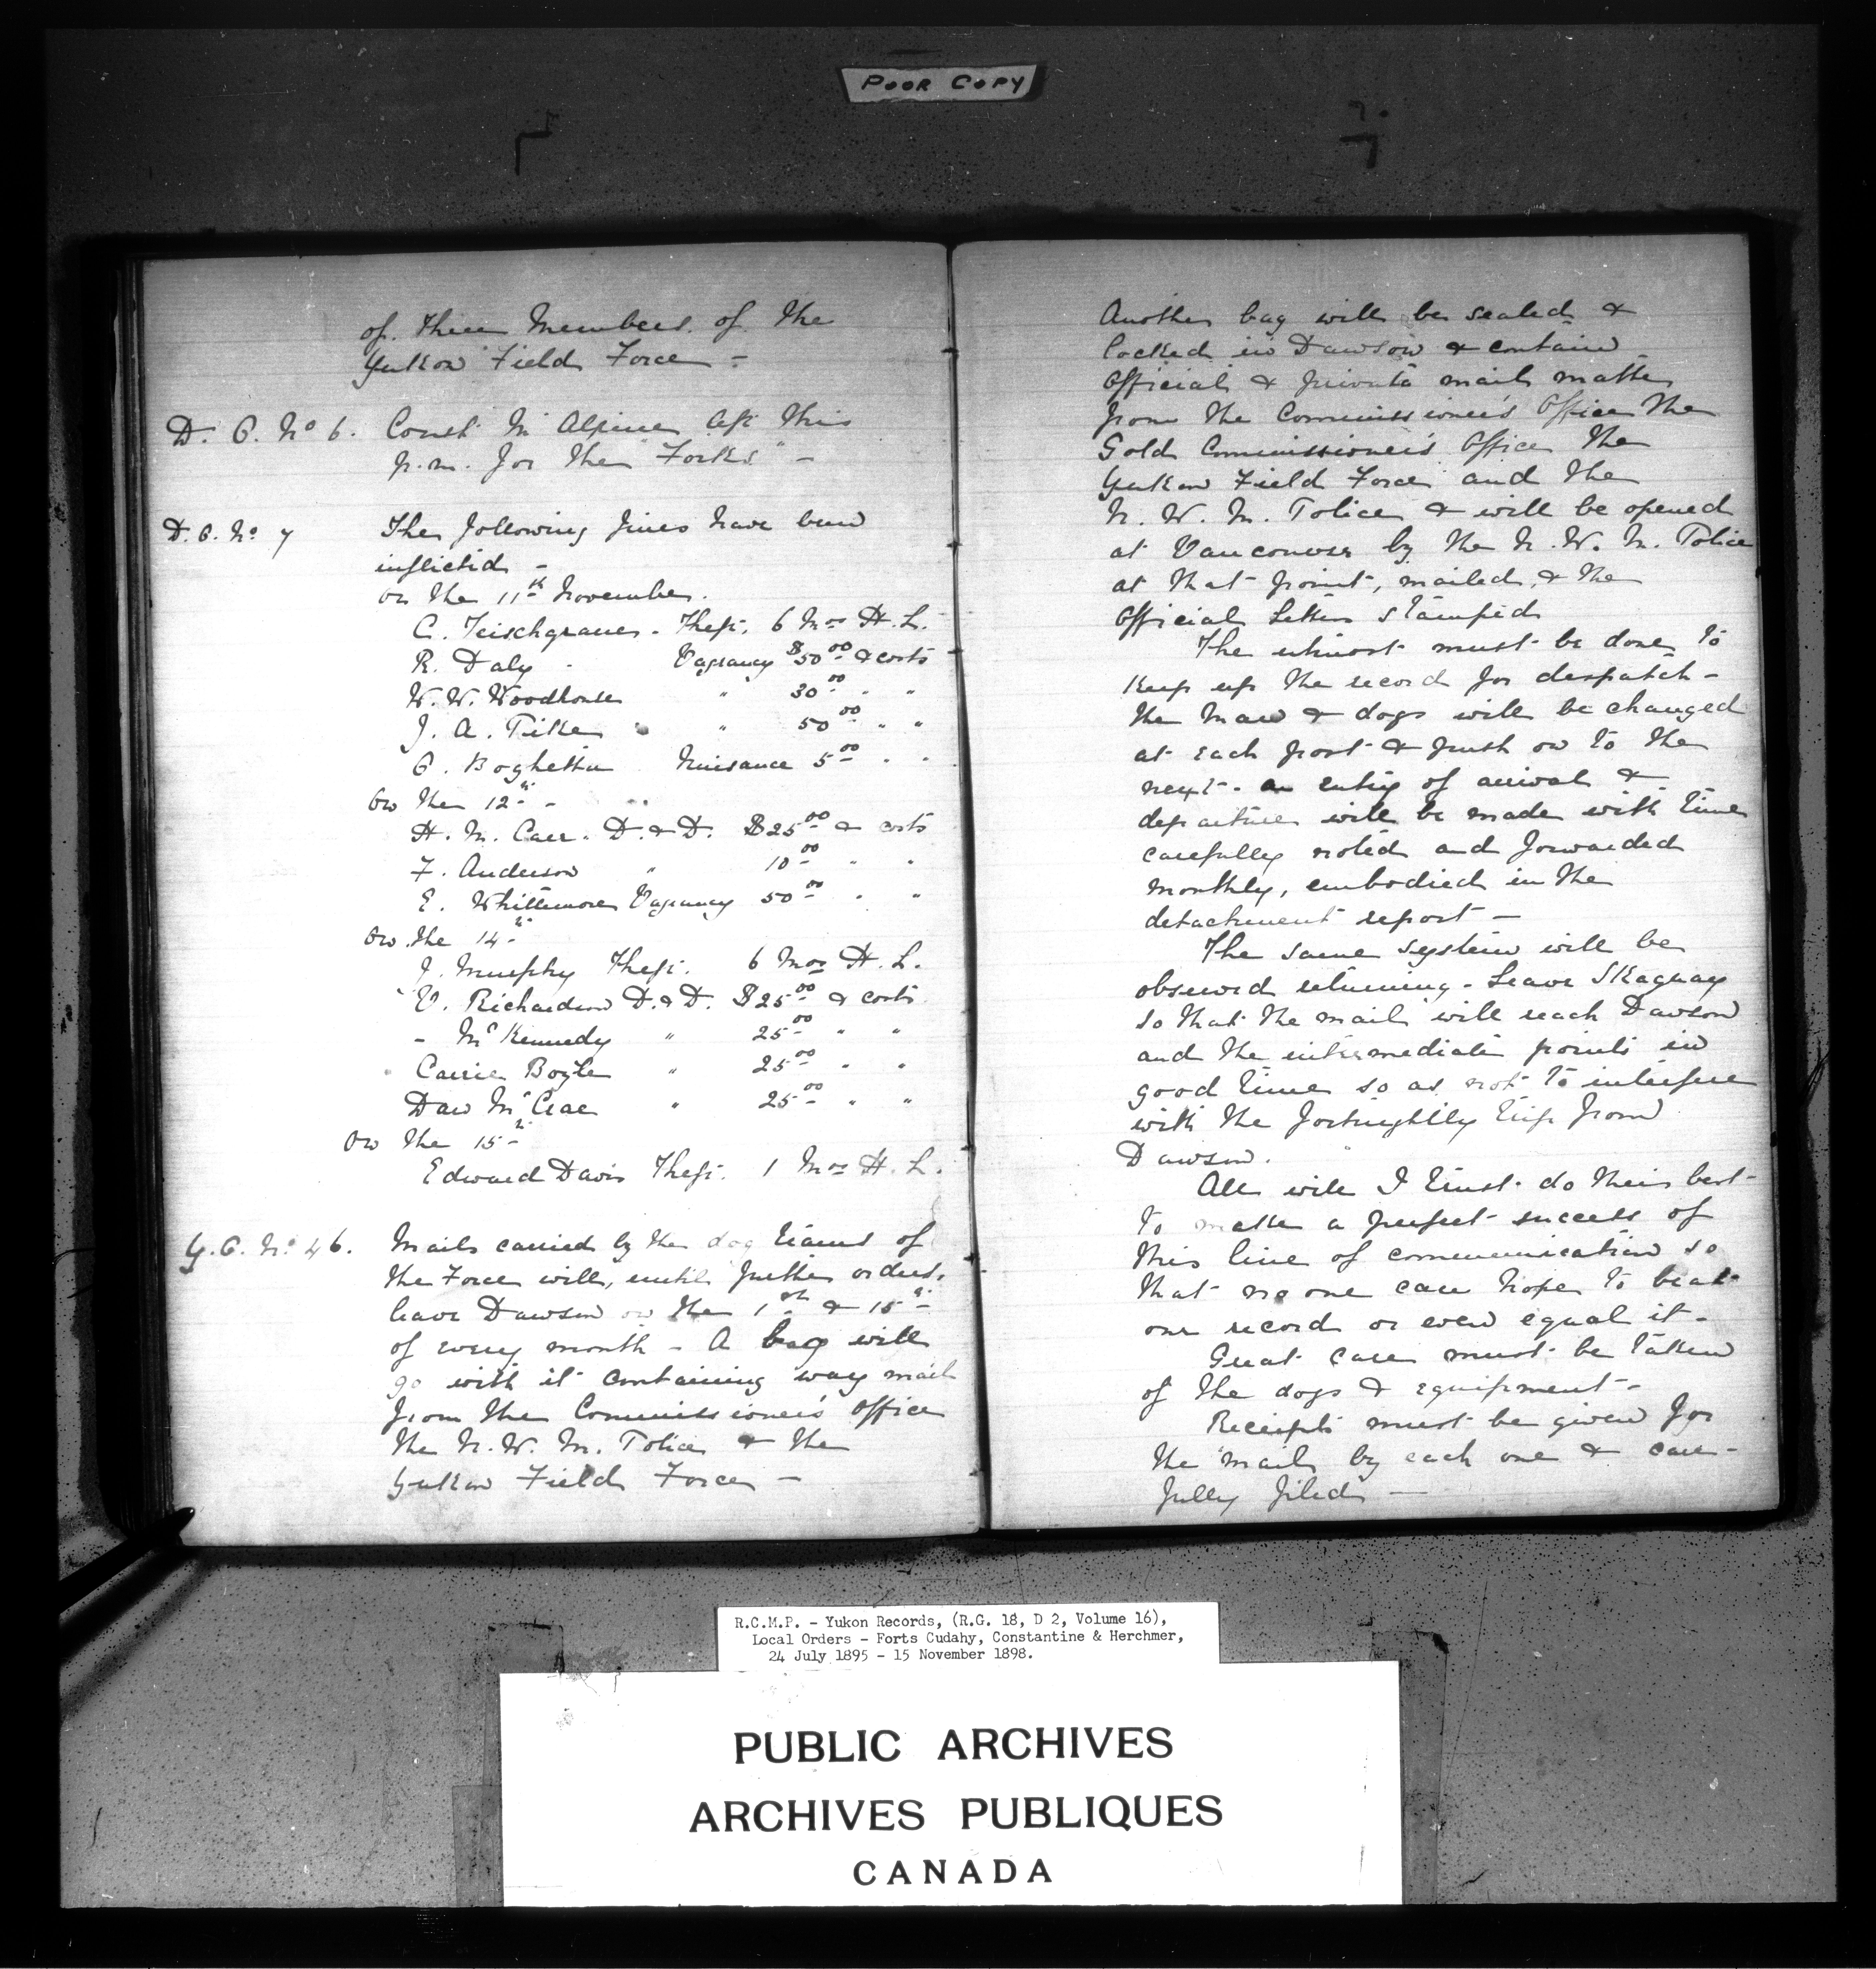 POOR COPY
of three members of the
Yukon Field Force -
D. O. No 6. Const McAlpine left this
p.m. for the "Forks" -
D. O. No. 7 The following fines have been
inflicted -
on the 11th November.
C. Teischgraver. Theft. 6 Mos H. L.
R. Daly - Vagrancy $50.00 & costs
W. W. Woodhouse " 30.00 " "
J. A. Pike " 50.00 " "
O. Boghetta Nuisance 5.00 " "
On the 12th -
H. M. Carr. D. & D. $25.00 & costs
F. Anderson " 10.00 " "
E. Whittemore Vagrancy 50.00 " "
On the 14th
J. Murphy Theft. 6 Mos H. L.
V. Richardson D. & D. $25.00 & costs
- McKennedy " 25.00 " "
Carrie Boyle " 25.00 " "
Dan McCrae " 25.00 " "
On the 15th
Edward Davis Theft. 1 Mos H. L.
G. O. No. 46. Mails carried by the dog teams of
the Force will, until further orders,
leave Dawson on the 1st & 15th
of every month - A bag will
go with it containing way mail
from the Commissioner's Office
the N. W. M. Police & the
Yukon Field Force -
Another bag will be sealed &
locked in Dawson & contain
Official & private mail matter
from the Commissioner's Office the
Gold Commissioner's Office the
Yukon Field Force and the
N. W. M. Police & will be opened
at Vancouver by the N. W. M. Police
at that point, mailed & the
Official Letters stamped
The utmost must be done to
keep up the record for despatch -
the man & dogs will be changed
at each post & push on to the
next - an entry of arrival &
departure will be made with time
carefully noted and forwarded
monthly, embodied in the
detachment report -
The same system will be
observed returning - Leave Skaguay
so that the mail will reach Dawson
and the intermediate points in
good time so as not to interfere
with the fortnightly trip from
Dawson.
All will I trust do their best
to make a perfect success of
this line of communication so
that no one can hope to beat
our record or even equal it -
Great care must be taken
of the dogs & equipment -
Receipts must be given for
the mail by each one & care-
fully filed -
R.C.M.P. - Yukon Records, (R.G. 18, D 2, Volume 16),
Local Orders - Forts Cudahy, Constantine & Herchmer,
24 July 1895 - 15 November 1898.
PUBLIC ARCHIVES
ARCHIVES PUBLIQUES
CANADA